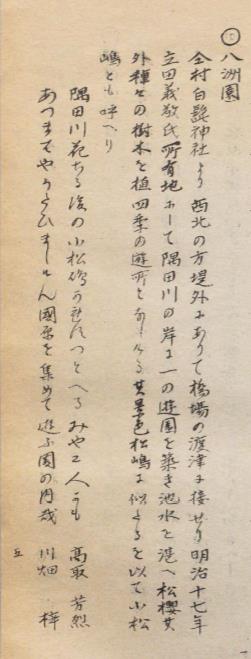 ○八洲園
仝村白髭神社より西北の方堤外にありて橋場の渡津に接せり明治十七年
立田義敬氏所有地にして隅田川の岸に一の遊園を築き池水を湛へ松櫻其
外種々の樹木を植四季の遊所となしたる其景色松嶋に似たるを以て小松
嶋とも呼へり
隅田川花ちる後の小松 つとへる みやこ人 も 高取 芳烈
あつまてや ん國原を集めて遊ふ園の内哉 川畑 梓
五